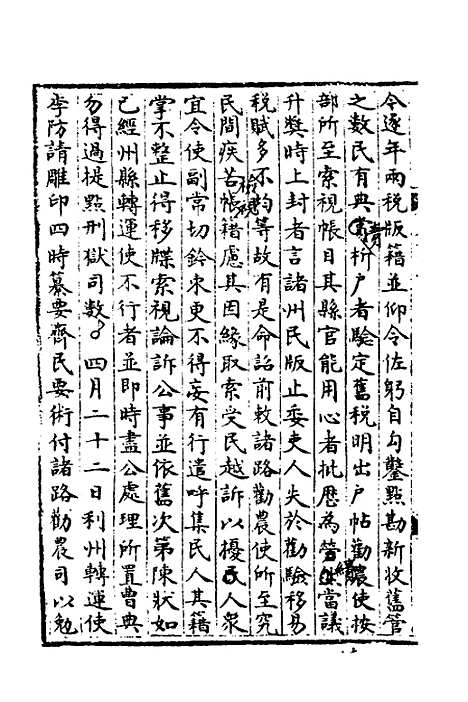 令逐年兩税版籍並仰令佐躬自勾鑿㸃勘新收舊管
之數民有典賣析户者驗定舊税明出户帖勸農使按
部所至索視帳目其縣官能用心者批歷為勞績當議
升奬時上封者言諸州民版止委吏人失於勘驗移易
税賦多不均等故有是命詔前敕諸路勸農使所至究
民間疾苦檢視帳籍慮其因縁取索受民越訴以擾民人衆
宜令使副常切鈐束更不得妄有行遣呼集民人其籍
掌不整止得移牒索視論訴公事並依舊次第陳狀如
已經州縣轉運使不行者並即時盡公處理所置曹典
勿得過提㸃刑獄司數 四月二十二日利州轉運使
李防請雕印四時纂要齊民要術付諸路勸農司以勉